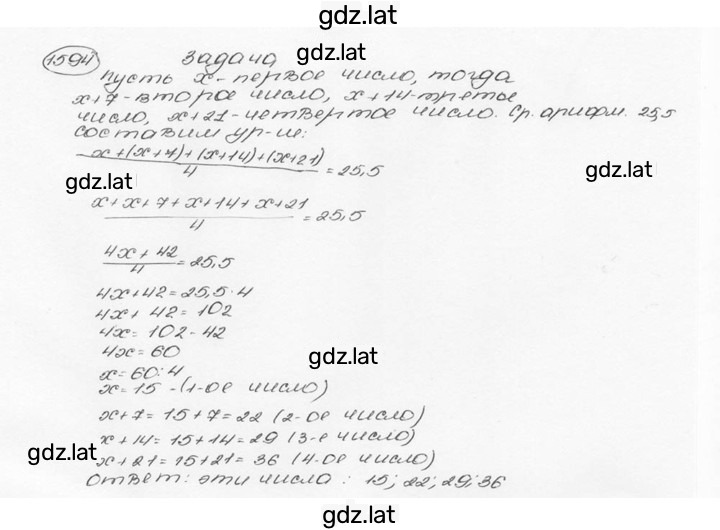 gdz.lat
1594 Задача gdz.lat
Пусть x - первое число, тогда
x+7 - второе число, x+14 - третье
число, x+21 - четвертое число. Ср. арифм. 25,5
Составим ур-ие:
x+(x+7)+(x+14)+(x+21)
/4 = 25,5
gdz.lat gdz.lat
x+x+7+x+14+x+21
/4 = 25,5
4x+42
/4 = 25,5
4x+42=25,5·4
4x+42=102
4x=102-42
4x=60
gdz.lat
x=60:4
x=15 - (1-ое число)
x+7=15+7=22 (2-ое число)
x+14=15+14=29 (3-е число)
gdz.lat
x+21=15+21=36 (4-ое число)
Ответ: эти числа: 15; 22; 29; 36
gdz.lat